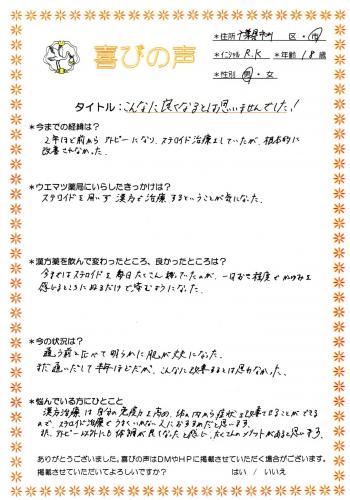 喜びの声
＊住所 千葉県市川 区・市
＊イニシャル R.K ＊年齢 18 歳
＊性別 男・女
タイトル：こんなに良くなるとは思いませんでした！
＊今までの経緯は？
2年ほど前から アトピーになり、ステロイド治療をしていたが、根本的に
改善されなかった。
＊ウエマツ薬局にいらしたきっかけは？
ステロイドを用いず 漢方で治療 するということが気になった。
＊漢方薬を飲んで変わったところ、良かったところは？
今まではステロイドを毎日たくさん 塗っていたのが、一日おき程度でかゆみを
感じるところにぬるだけで 済むようになった。
＊今の状況は？
通う前と比べて 明らかに 肌が 丈夫になった。
まだ 通いだして 半年ほどだが、こんなに改善するとは思わなかった。
＊悩んでいる方にひとこと
漢方治療 は 自分の 免疫力を 高め、体の内から症状を改善させることができる
ので、ステロイド治療でうまくいかない人におすすめだと思います。
また、アトピー以外にも 体調が良くなったと感じ、たくさんメリットがあると思います。
ありがとうございました。喜びの声はDMやHPに掲載させていただく場合がございます。
掲載させていただいてよろしいですか？ はい / いいえ